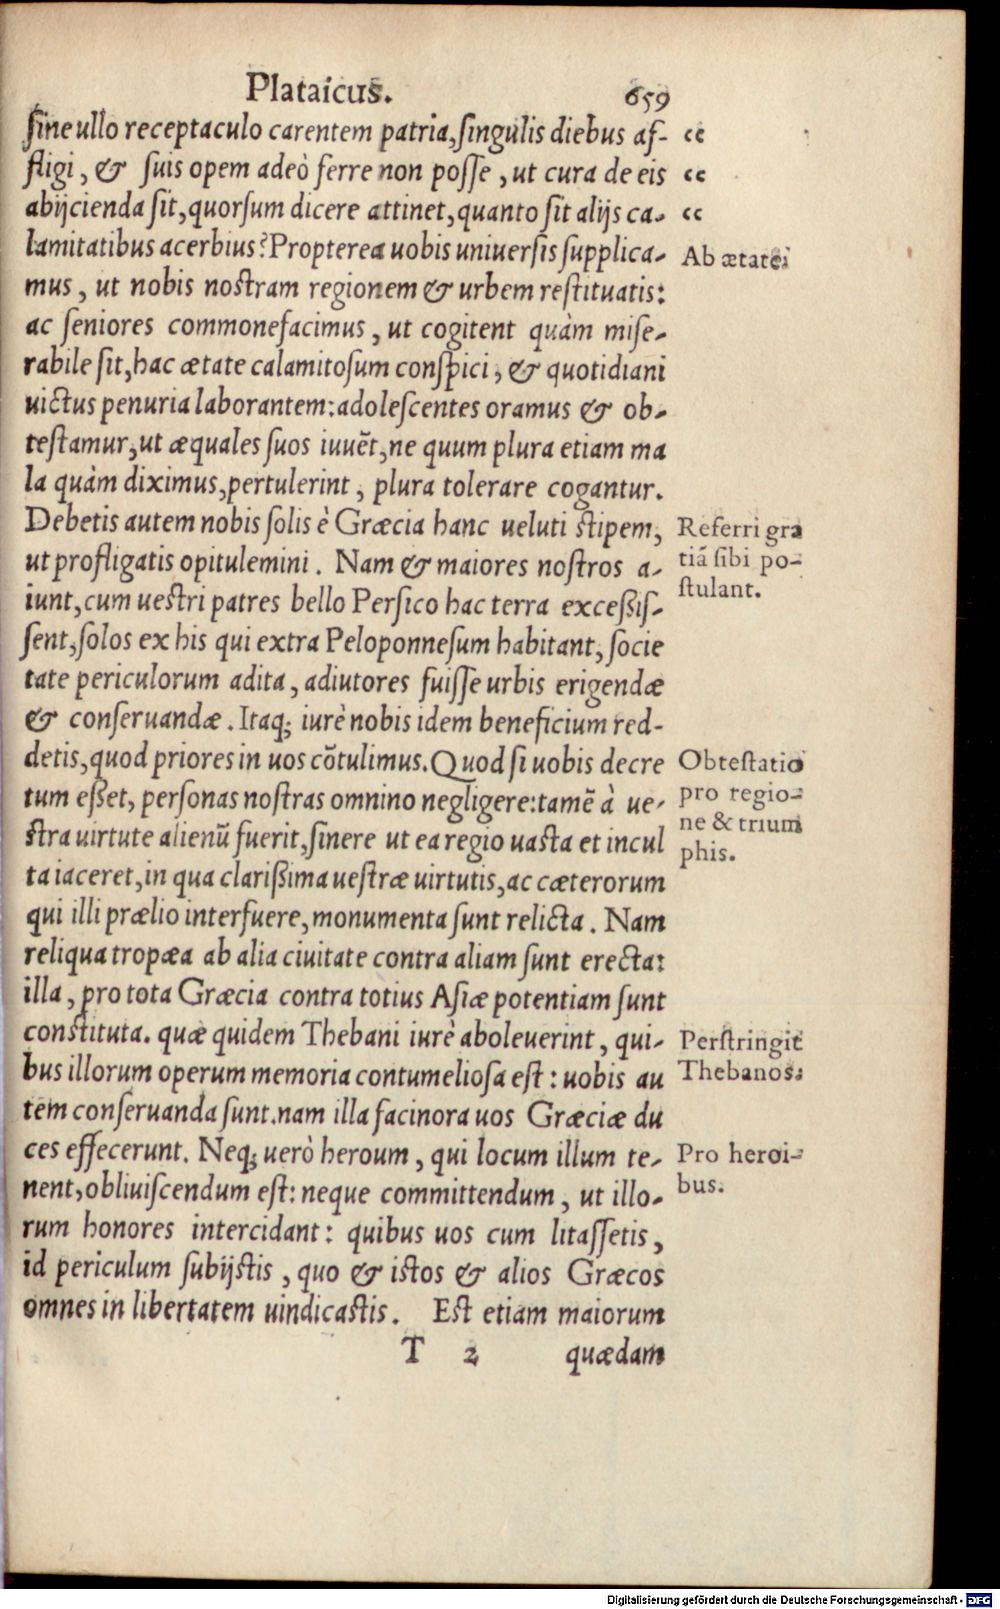 Plataicus. 659
ſine ullo receptaculo carentem patria, ſingulis diebus af- “
fligi, & ſuis opem adeò ferre non poſſe, ut cura de eis “
abijcienda ſit, quorſum dicere attinet, quanto ſit alijs ca- “
lamitatibus acerbius? Propterea uobis uniuerſis ſupplica-
Ab ætate.
mus, ut nobis noſtram regionem & urbem reſtituatis:
ac ſeniores commonefacimus, ut cogitent quàm miſe-
rabile ſit, hac ætate calamitoſum conſpici, & quotidiani
uictus penuria laborantem: adoleſcentes oramus & ob-
teſtamur, ut æquales ſuos iuuēt, ne quum plura etiam ma
la quàm diximus, pertulerint, plura tolerare cogantur.
Debetis autem nobis ſolis è Græcia hanc ueluti ſtipem,
ut profligatis opitulemini. Nam & maiores noſtros a-
iunt, cum ueſtri patres bello Perſico hac terra exceßiſ-
ſent, ſolos ex his qui extra Peloponneſum habitant, ſocie
Referri gra
tiā ſibi po-
ſtulant.
tate periculorum adita, adiutores fuiſſe urbis erigendæ
& conſeruandæ. Itaq; iurè nobis idem beneficium red-
detis, quod priores in uos cōtulimus. Quod ſi uobis decre
tum eßet, perſonas noſtras omnino negligere: tamē à ue-
ſtra uirtute alienū fuerit, ſinere ut ea regio uaſta et incul
ta iaceret, in qua clarißima ueſtræ uirtutis, ac cæterorum
Obteſtatio
pro regio-
ne & trium
phis.
qui illi prælio interfuere, monumenta ſunt relicta. Nam
reliqua tropæa ab alia ciuitate contra aliam ſunt erecta:
illa, pro tota Græcia contra totius Aſiæ potentiam ſunt
conſtituta. quæ quidem Thebani iurè aboleuerint, qui-
bus illorum operum memoria contumelioſa eſt: uobis au
Perſtringit
Thebanos.
tem conſeruanda ſunt. nam illa facinora uos Græciæ du
ces effecerunt. Neq; uerò heroum, qui locum illum te-
nent, obliuiſcendum eſt: neque committendum, ut illo-
Pro heroi-
bus.
rum honores intercidant: quibus uos cum litaſſetis,
id periculum ſubijſtis, quo & iſtos & alios Græcos
omnes in libertatem uindicaſtis. Eſt etiam maiorum
T 2 quædam
Digitalisierung gefördert durch die Deutsche Forschungsgemeinschaft - DFG